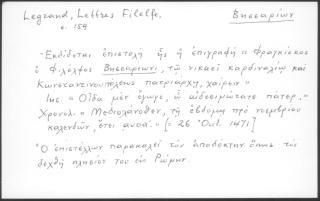 Legrand, Lettres Filelfe, Βησσαρίων
σ. 159
- Ἐκδίδεται ἐπιστολὴ ἧς ἡ ἐπιγραφὴ " Φραγκίσκος
ὁ Φιλέλφος Βησσαρίωνι, τῷ νικαεῖ καρδιναλίῳ καὶ
Κωνσταντινουπόλεως πατριάρχῃ, χαίρειν"
Inc " Οἶδα μὲν ἔγωγε, ὦ αἰδεσιμώτατε πάτερ. "
Χρονολ. " Μεδιολάνοθεν, τῇ ἑβδόμῃ πρὸ νοεμβρίου
καλενδῶν, ἔτει ͵αυοα´. " [= 26 Oct. 1471]
Ὁ ἐπιστέλλων παρακαλεῖ τὸν ἀποδέκτην ὅπως τὸν
δεχθῇ πλησίον του ἐν Ρώμῃ.